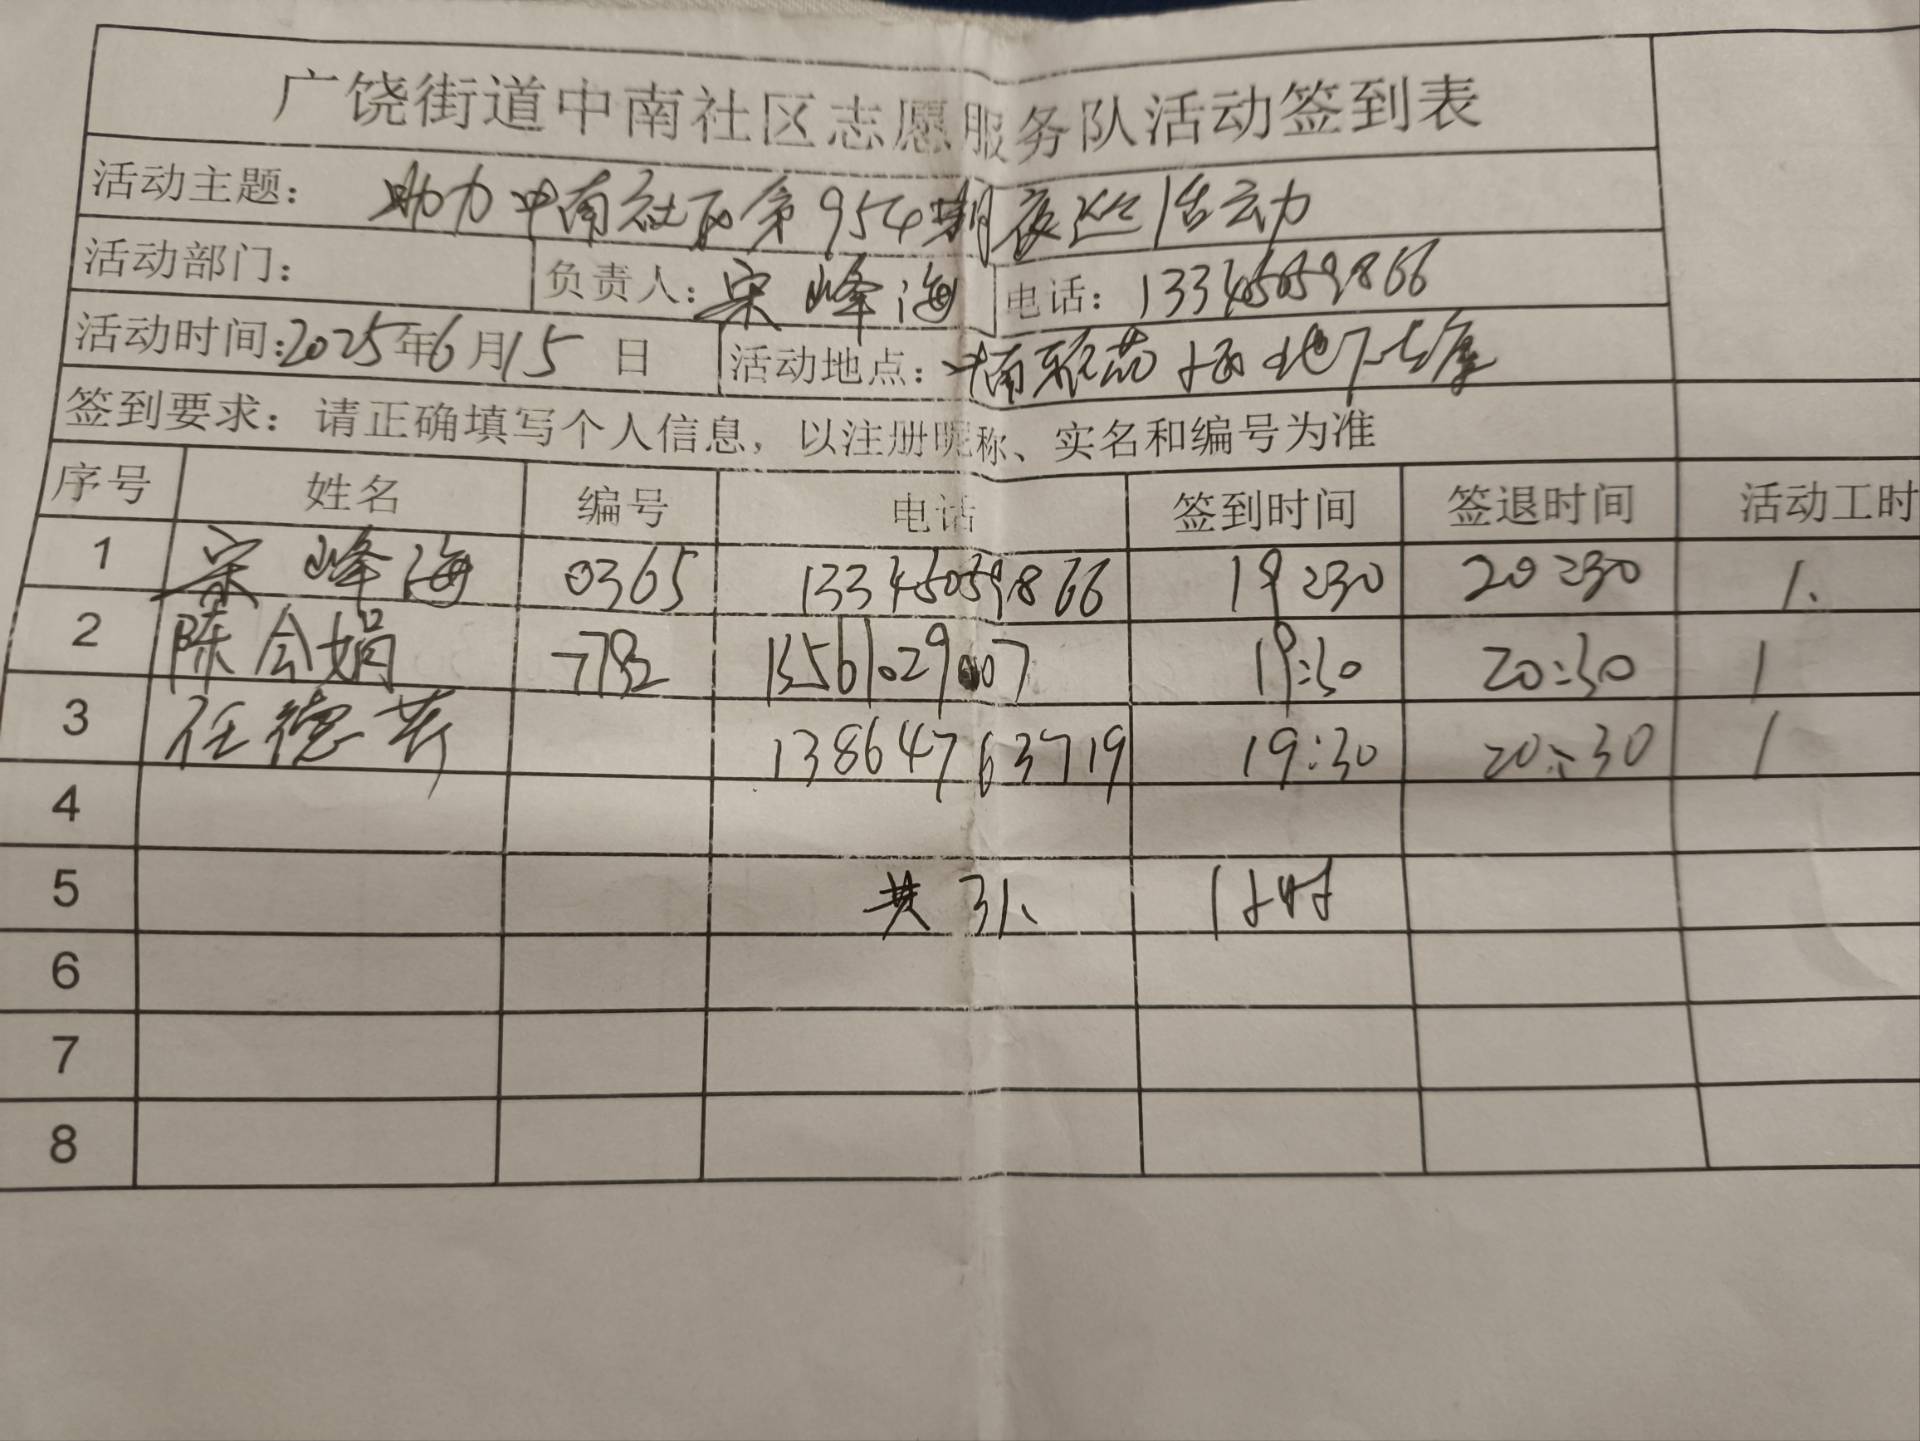 广饶街道中南社区志愿服务队活动签到表
活动主题： 助力中南社区第954期夜巡活动
活动部门： 负责人：宋峰海 电话：13345059866
活动时间：2025年6月15日 活动地点： 地下车库
签到要求：请正确填写个人信息，以注册昵称、实名和编号为准
序号 姓名 编号 电话 签到时间 签退时间 活动工时
1 宋峰海 0365 13345059866 19:30 20:30 1.
2 陈会娟 7132 13561029007 19:30 20:30 1
3 任德芳 13864763719 19:30 20:30 1
4
5 共3人、 1小时
6
7
8